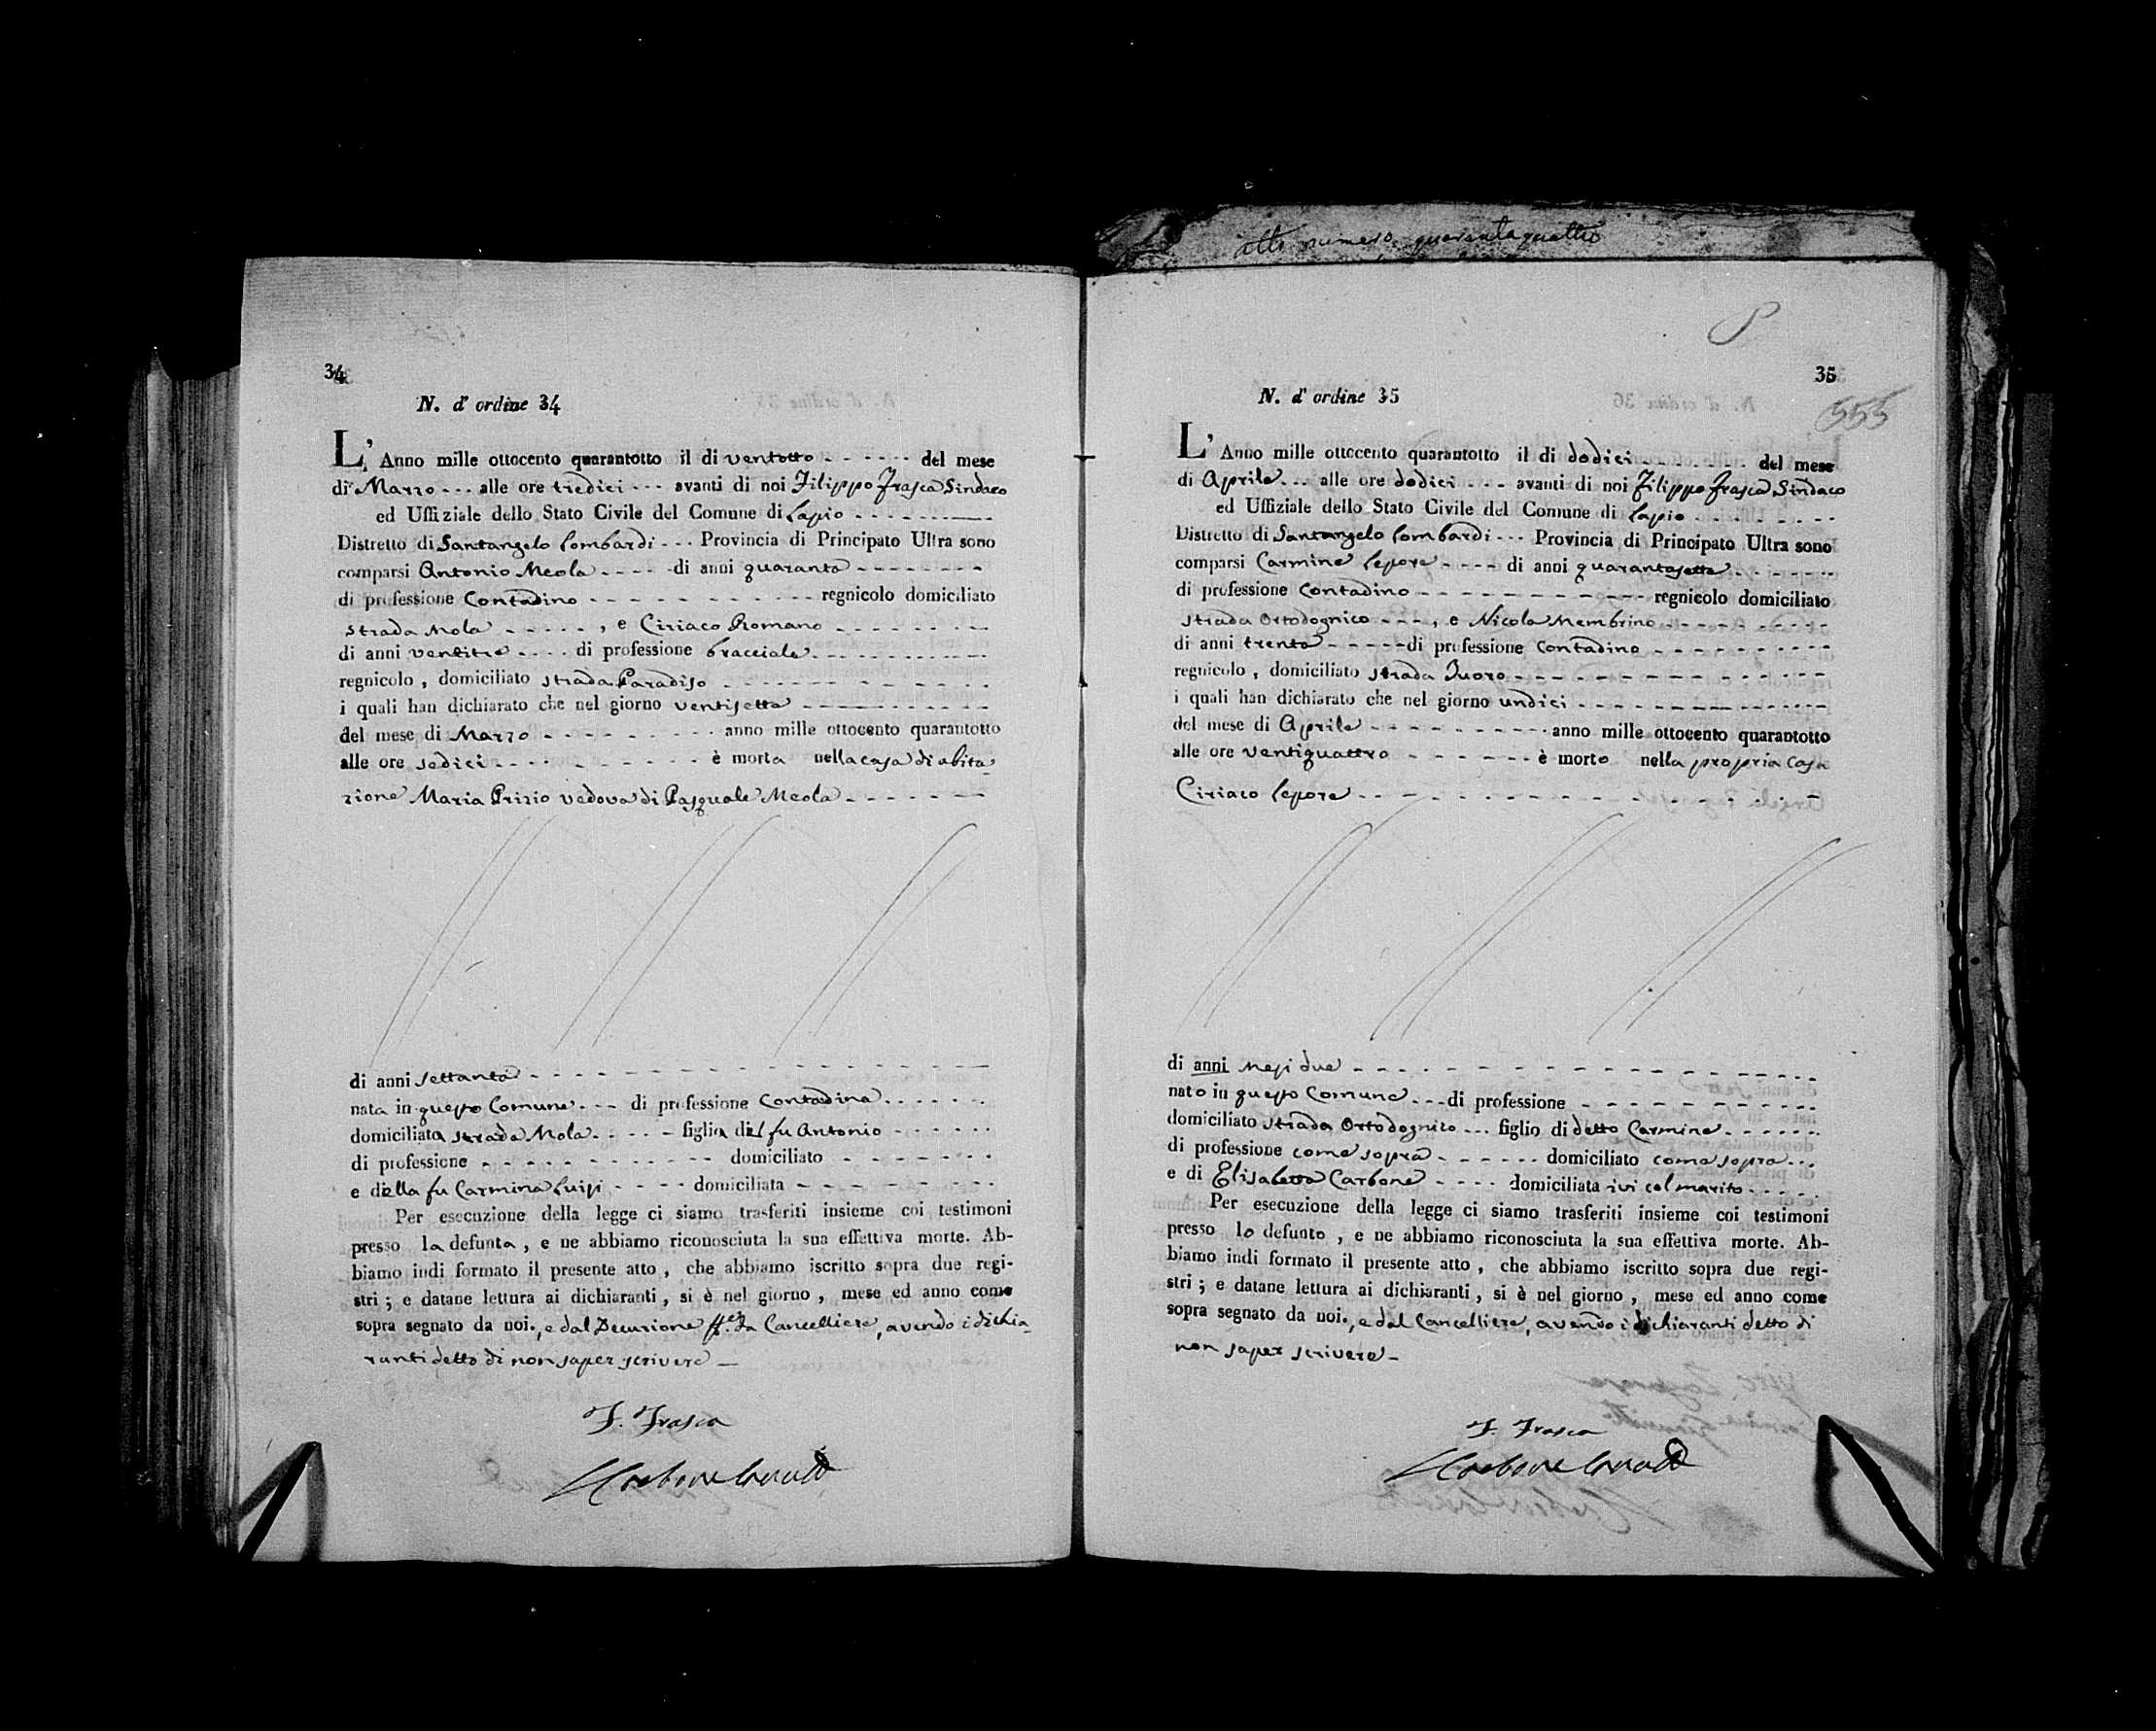 34
N. d' ordine 34
L' Anno mille ottocento quarantotto il di ventotto - - - - - - del mese
di Marzo - - - alle ore tredici - - - avanti di noi Filippo Frasca Sindaco
ed Uffiziale dello Stato Civile del Comune di Lapio - - - - - - - -
Distretto di Santangelo Lombardi - - - Provincia di Principato Ultra sono
comparsi Antonio Meola - - - - - di anni quaranta - - - - - - - -
di professione Contadino - - - - - - - - - - - - regnicolo domiciliato
strada Mola - - - - - , e Ciriaco Romano - - - - - - - -
di anni ventitre - - - - di professione bracciale - - - - - - - - - -
regnicolo , domiciliato strada Paradiso - - - - - - - - - - - -
i quali han dichiarato che nel giorno ventisette - - - - - - - - -
del mese di Marzo - - - - - - - - - anno mille ottocento quarantotto
alle ore sedici - - - - - - - - - - è morta nella casa di abita-
zione Maria Prizio vedova di Pasquale Meola - - - - - - -
di anni settanta - - - - - - - - - - - - - - - - - -
nata in questo Comune - - - di professione Contadina - - - - - -
domiciliata strada Mola - - - - - figlia del fu Antonio - - - - - -
di professione - - - - - - - - - - - - domiciliato - - - - - - -
e della fu Carmina Luisi - - - - domiciliata - - - - - - - -
Per esecuzione della legge ci siamo trasferiti insieme coi testimoni
presso la defunta , e ne abbiamo riconosciuta la sua effettiva morte. Ab-
biamo indi formato il presente atto , che abbiamo iscritto sopra due regi-
stri ; e datane lettura ai dichiaranti , si è nel giorno , mese ed anno come
sopra segnato da noi. , e dal Decurione ff. da Cancelliere , avendo i dichia-
ranti detto di non saper scrivere -
F. Frasca
atto numero quarantaquattro
35
555
N. d' ordine 35
L' Anno mille ottocento quarantotto il di dodici - - - - - - - del mese
di Aprile - - - alle ore dodici - - - avanti di noi Filippo Frasca Sindaco
ed Uffiziale dello Stato Civile del Comune di Lapio - - - - - - - -
Distretto di Santangelo Lombardi - - - Provincia di Principato Ultra sono
comparsi Carmine Lepore - - - - di anni quarantasette - - - - - - -
di professione Contadino - - - - - - - - - - - - regnicolo domiciliato
strada Ortodognico - - - , e Nicola Membrino - - - - - - - -
di anni trenta - - - - - di professione Contadino - - - - - - - - - -
regnicolo , domiciliato strada Fuoro - - - - - - - - - - - - -
i quali han dichiarato che nel giorno undici - - - - - - - - - - - -
del mese di Aprile - - - - - - - - - - anno mille ottocento quarantotto
alle ore ventiquattro - - - - - - - è morto nella propria casa
Ciriaco Lepore - - - - - - - - - - - - - - - - - - -
di anni mesi due - - - - - - - - - - - - - - - - - -
nato in questo Comune - - - di professione - - - - - - - - - -
domiciliato strada Ortodognico - - - figlio di detto Carmine - - - - - -
di professione come sopra - - - - - - domiciliato come sopra - - -
e di Elisabetta Carbone - - - - domiciliata ivi col marito - - - -
Per esecuzione della legge ci siamo trasferiti insieme coi testimoni
presso lo defunto , e ne abbiamo riconosciuta la sua effettiva morte. Ab-
biamo indi formato il presente atto , che abbiamo iscritto sopra due regi-
stri ; e datane lettura ai dichiaranti , si è nel giorno , mese ed anno come
sopra segnato da noi. , e dal Cancelliere , avendo i dichiaranti detto di
non saper scrivere -
F. Frasca